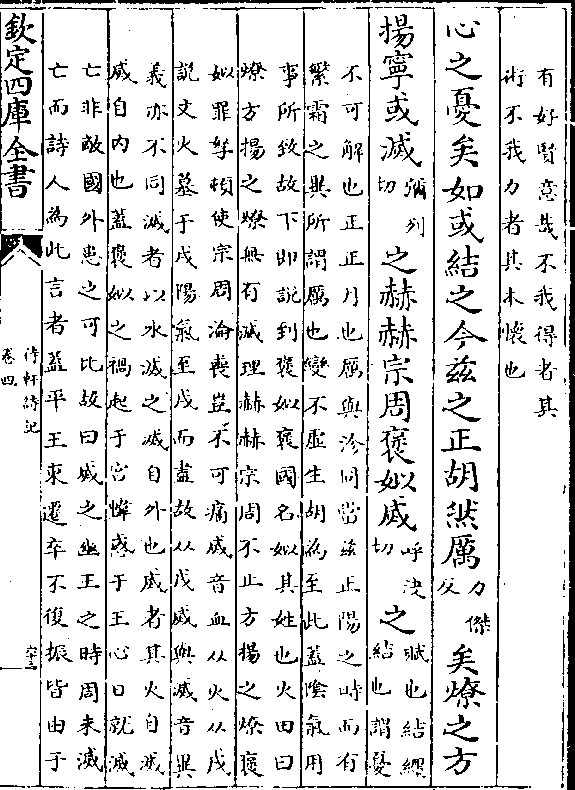 有好賢意哉不我得者其
術不我力者其本懐也
心之憂矣如或結之今兹之正胡然厲力傑反矣燎之方
揚寧或滅彌列切之赫赫宗周褒姒烕呼決切之賦也結纒結也謂憂
不可解也正正月也厲與沴同當兹正陽之時而有
繁霜之異所謂厲也變不虛生胡為至此蓋陰氣用
事所致故下即說到褒姒褒國名姒其姓也火田曰
燎方揚之燎無有滅理赫赫宗周不止方揚之燎褒
姒罪孽頓使宗周淪喪豈不可痛烕音血从火从戌
說文火墓于戌陽氣至戌而盡故从戌烕與滅音異
義亦不同滅者以水滅之滅自外也烕者其火自滅
烕自内也蓋褒姒之禍起于宫幃惑于王心日就滅
亡非敵國外患之可比故曰烕之幽王之時周未滅
亡而詩人為此言者蓋平王東遷卒不復振皆由于
欽定四庫全書
待軒詩記
卷四